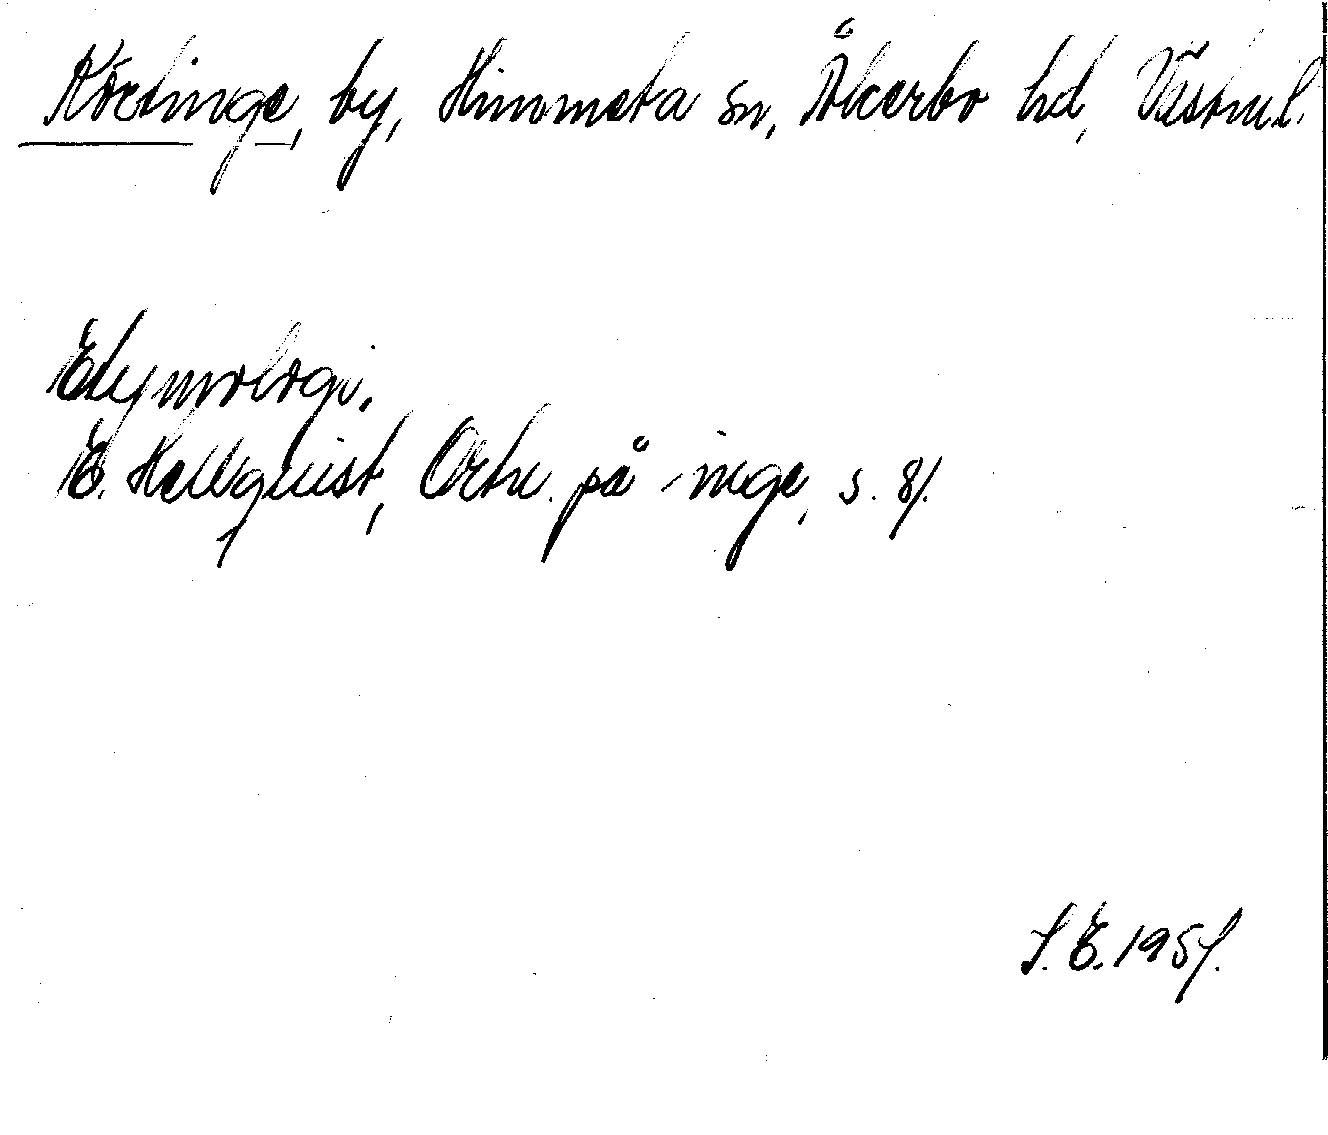 Körtinge, by, Himmeta sn, Åkerbo hd, Västml.
Etymologi.
E. Hellquist, Ortn. på -inge, s. 81.
S. E. 1951.